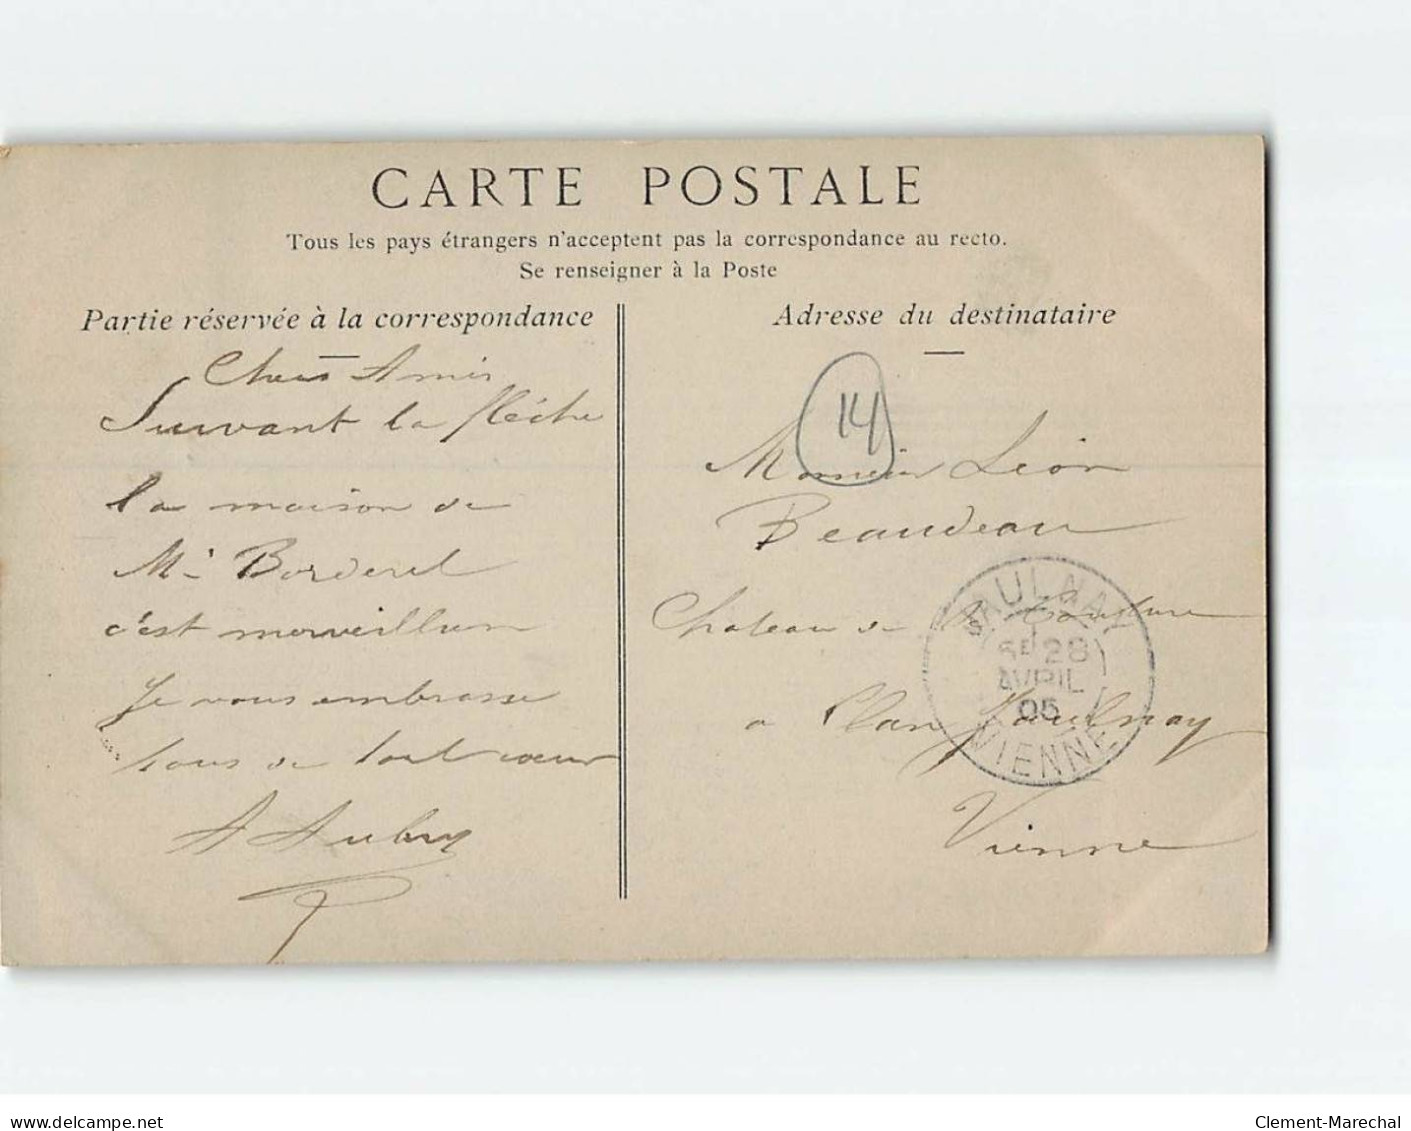 CARTE POSTALE
Tous les pays étrangers n'acceptent pas la correspondance au recto.
Se renseigner à la Poste
Partie réservée à la correspondance
Chers Amis
Suivant la flèche
la maison de
Mr Borderel
c'est merveilleux
Je vous embrasse
tous de tout cœur
A Aubry
Adresse du destinataire
14
Monsieur Léon
Beaudeau
Chateau de la
a Jaulnay
Vienne
JAULNAY
28
AVRIL
05
VIENNE
www.delcampe.net
Clement-Marechal